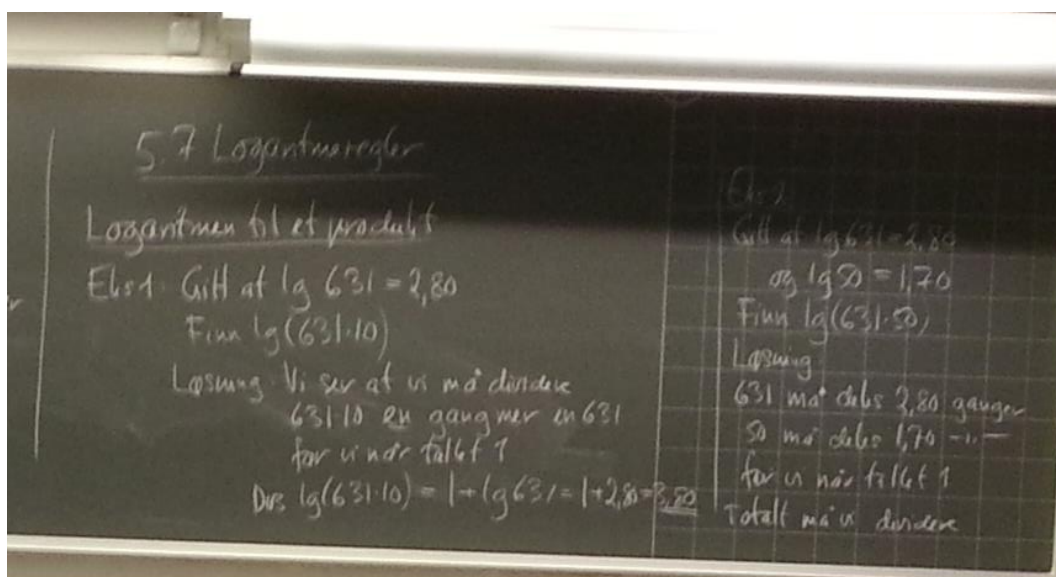 5.7 Logaritmeregler
Logaritmen til et produkt
Eks 1 Gitt at lg 631 = 2,80
Finn lg(631·10)
Løsning Vi ser at vi må dividere
631·10 en gang mer en 631
før vi når tallet 1
Dvs lg(631·10) = 1 + lg 631 = 1 + 2,80 = 3,80
Eks 2
Gitt at lg 631 = 2,80
og lg 50 = 1,70
Finn lg(631·50)
Løsning
631 må deles 2,80 ganger
50 må deles 1,70 -"-
før vi når tallet 1
Totalt må vi dividere